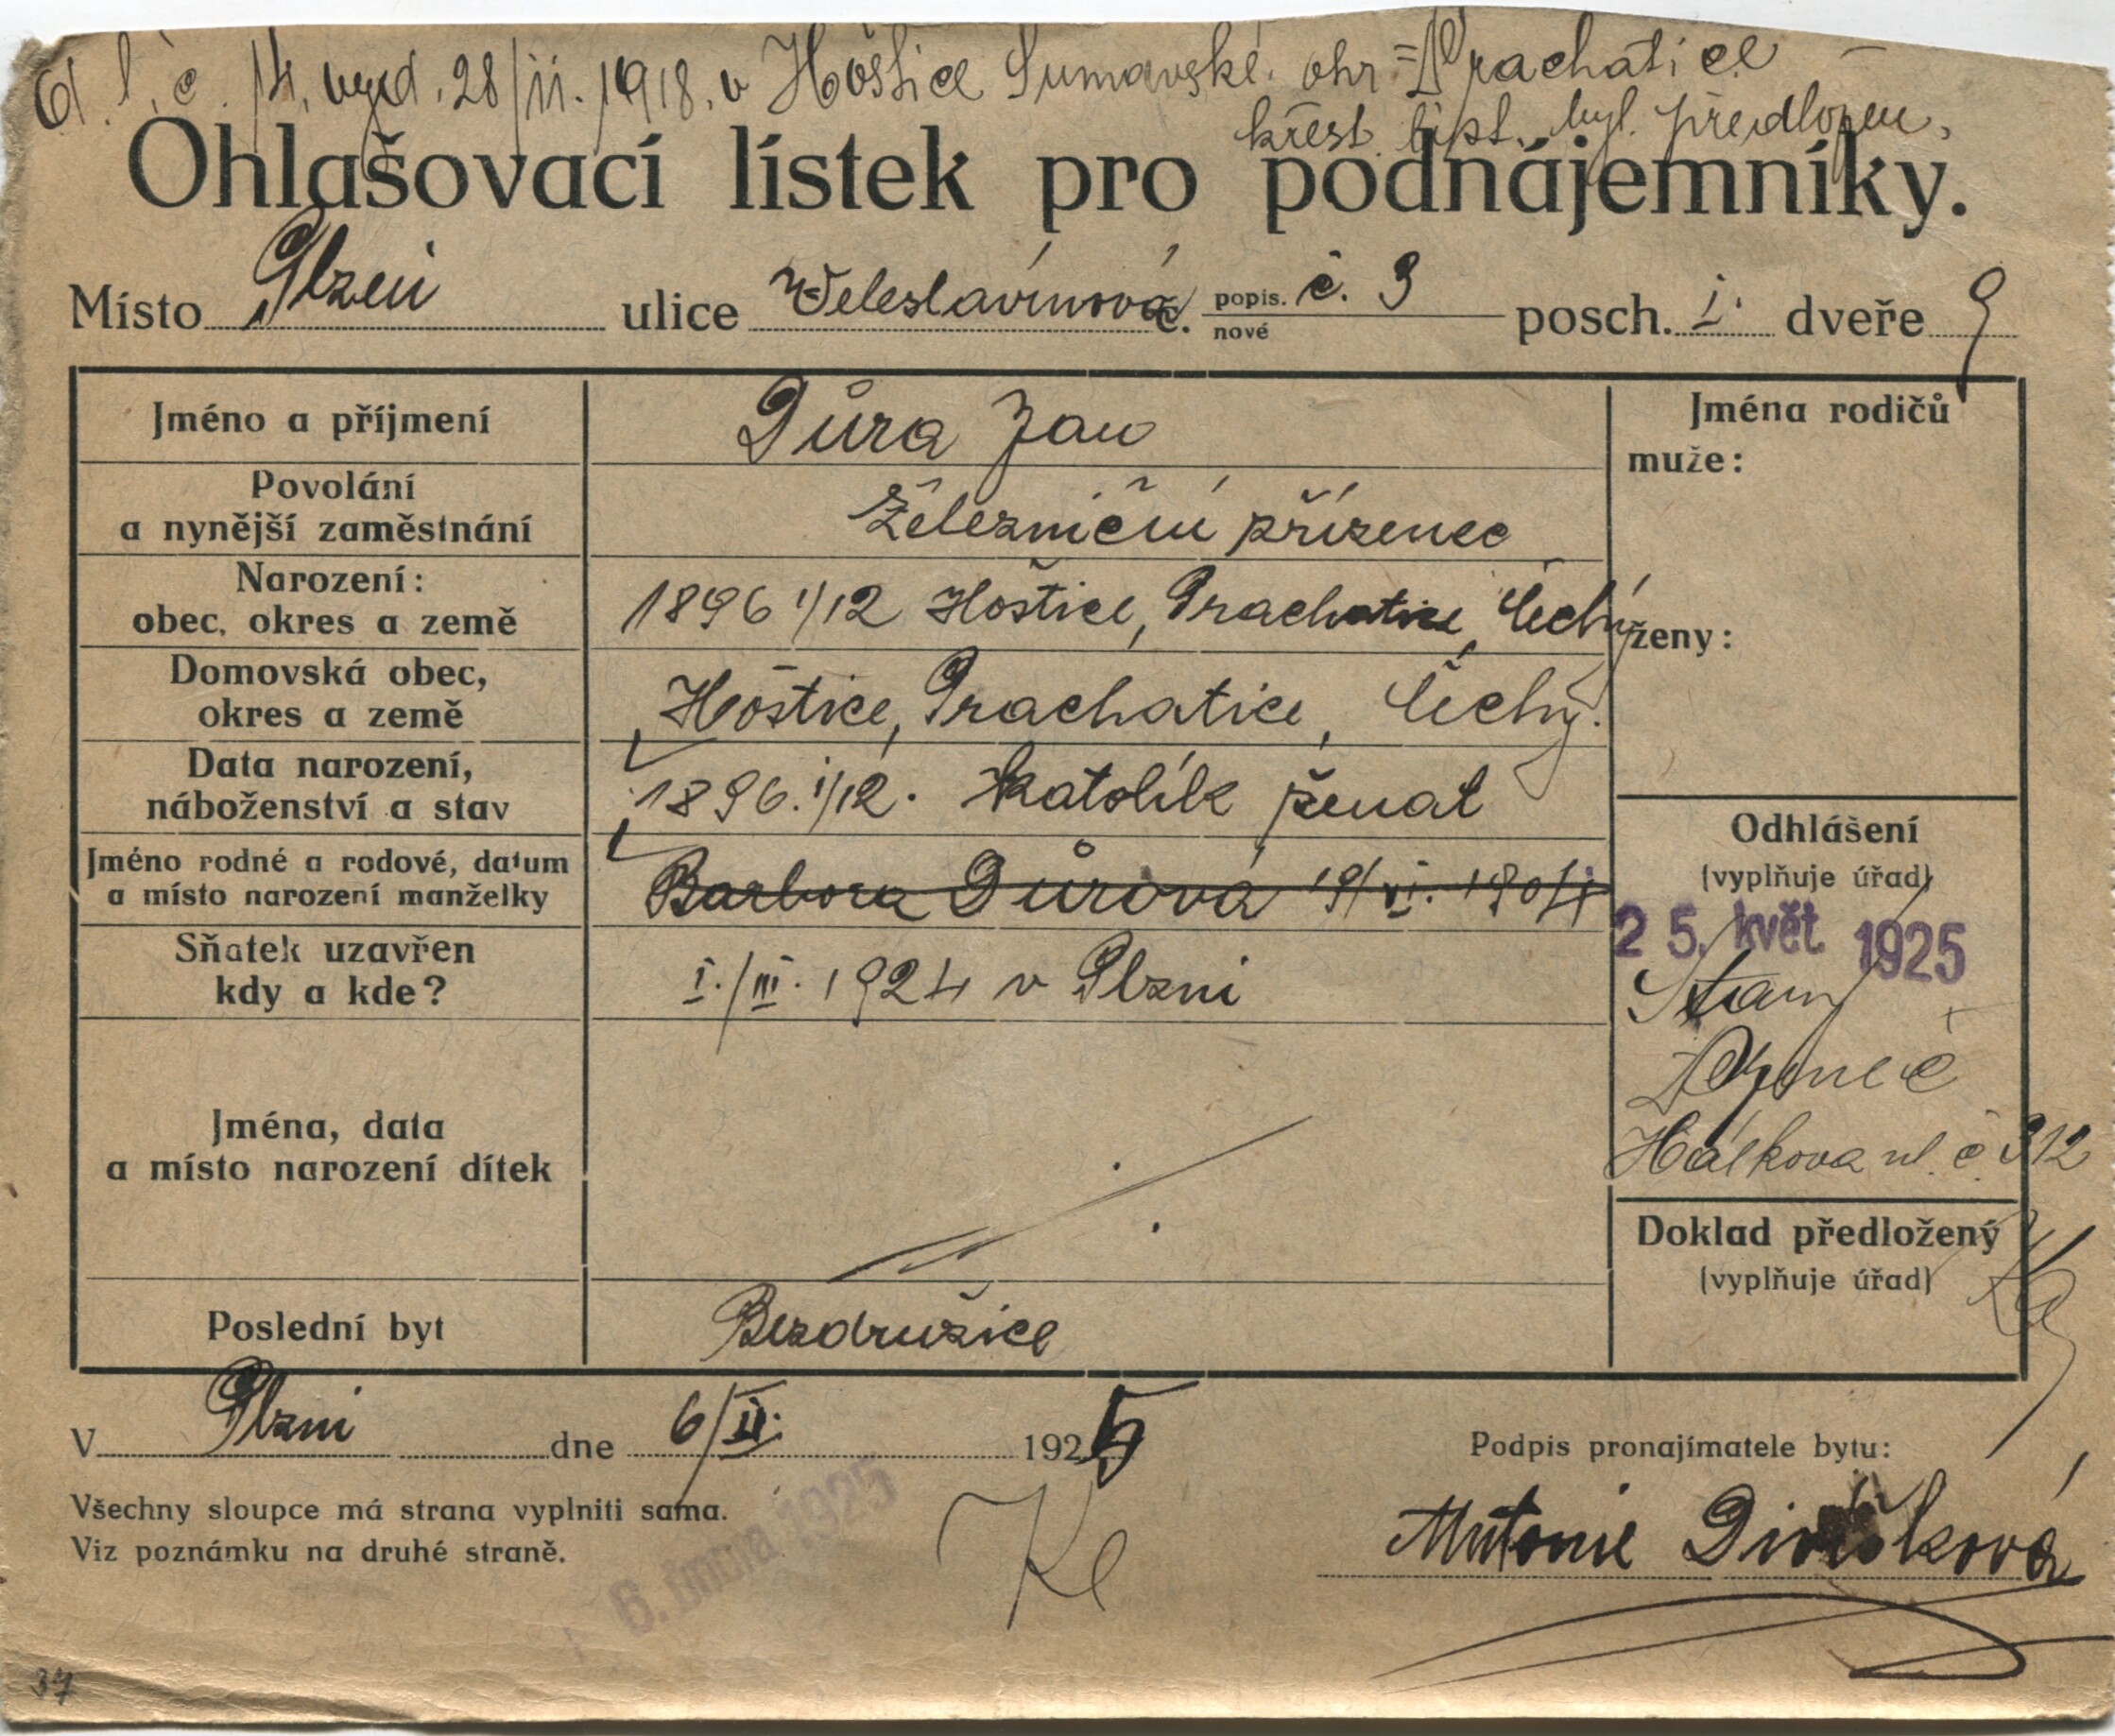 d. l. č. 14. vyd. 28/II. 1918. v Hoštice Šumavské. ohr. Prachatice
křest. list. byl. předložen.
Ohlašovací lístek pro podnájemníky.
Místo Plzeň ulice Veleslavínová č. popis. nové č. 9 posch. I. dveře 9
Jméno a příjmení Důra Jan
Jména rodičů
muže:
Povolání
a nynější zaměstnání Železniční přízenec
Narození:
obec, okres a země 1896 1/12 Hoštice, Prachatice, Čechy
ženy:
Domovská obec,
okres a země Hoštice, Prachatice, Čechy.
Data narození,
náboženství a stav 1896. 1/12. katolík ženat
Odhlášení
(vyplňuje úřad)
Jméno rodné a rodové, datum
a místo narození manželky Barbora Důrová 19/VI. 1904
25. květ. 1925
Sňatek uzavřen
kdy a kde? I./III. 1924 v Plzni
Starý
Hálkova ul. č. 312
Jména, data
a místo narození dítek
Doklad předložený
(vyplňuje úřad)
Poslední byt Bezdružice
V Plzni dne 6/II. 1925
Podpis pronajímatele bytu:
Všechny sloupce má strana vyplniti sama.
Viz poznámku na druhé straně.
6. února 1925
Antonie Divišková
37